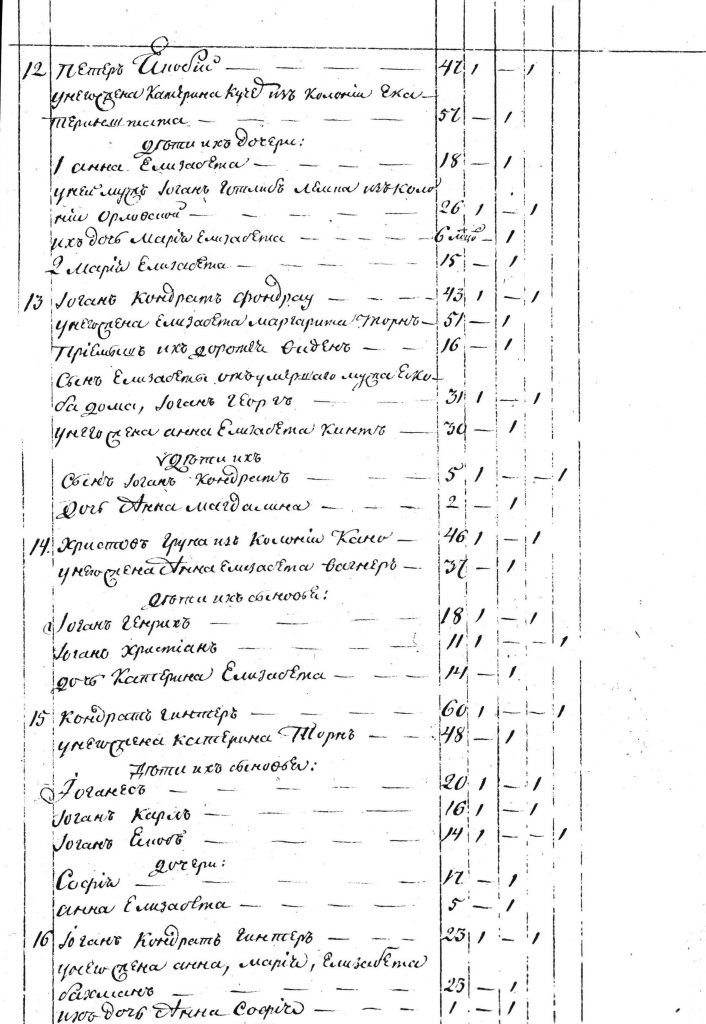 12 Петеръ Якобий — 47 1 — 1
унегожена Катерина Куче изъ Колоніи Ека–
теринштата — 57 — 1
дѣти ихъ дочери:
1 анна Елизабета — — — — 18 — 1
уней мужъ Іоганъ Готлибъ изъ Коло
ніи Орловской — — — — 26 1 — 1
ихъ дочь Маріа Елизабета — — — 6 — 1
2 Маріа Елизабета — — — — 15 — 1
13 Іоганъ Кондратъ фондрау — — — 43 1 — 1
унегожена Елизабета Маргарита Торнъ — 51 — 1
Пріемышъ ихъ доротеа — — 16 — 1
Сынъ Елизабеты отъ умершаго мужа Еко–
ба дома, Іоганъ Георгъ — — — 31 1 — 1
унегожена анна Елизабета Кинтъ — — 30 — 1
дѣти ихъ
Сынъ Іоганъ Кондратъ — — — 5 1 — — 1
дочь Анна Магдалина — — — 2 — 1
14 Христовъ Груна изъ Колоніи Кано — 46 1 — 1
унегожена Анна Елизабета Вагнеръ — 37 — 1
дѣти ихъ сыновьи:
Іоганъ Генрихъ — — — — 18 1 — 1
Іоганъ Христіанъ — — — — 11 1 — — 1
дочь Катерина Елизабета — — — 14 — 1
15 Кондратъ Гинтеръ — — — — 60 1 — — 1
унегожена Катерина Торнъ — — 48 — 1
Дѣти ихъ сыновьи:
Іоганесъ — — — — — 20 1 — 1
Іоганъ Карлъ — — — — 16 1 — 1
Іоганъ Якобъ — — — — 14 1 — — 1
дочери:
Софіа — — — — — 17 — 1
анна Елизабета — — — — 5 — 1
16 Іоганъ Кондратъ Гинтеръ — — — 23 1 — 1
унегожена анна, маріа, Елизабета
бахманъ — — — — — 23 — 1
ихъ дочь Анна Софіа — — — 1 — 1